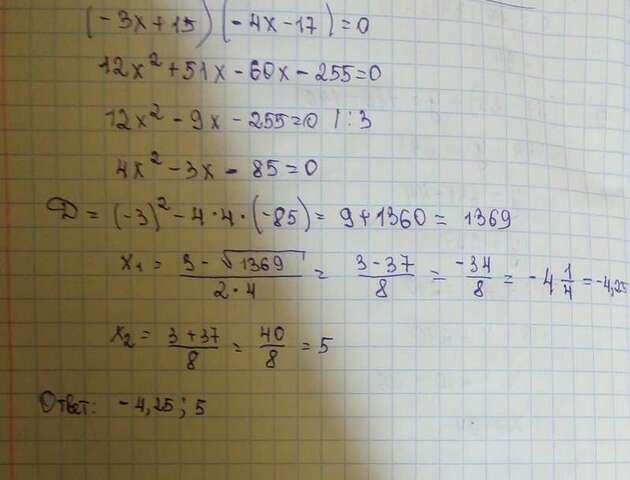 (-3x+15)(-4x-17)=0
12x²+51x-60x-255=0
12x²-9x-255=0 /:3
4x²-3x-85=0
D=(-3)²-4·4·(-85)=9+1360=1369
x₁=(3-√1369)/(2·4)=(3-37)/8=-34/8=-4 1/4=-4,25
x₂=(3+37)/8=40/8=5
Ответ: -4,25; 5